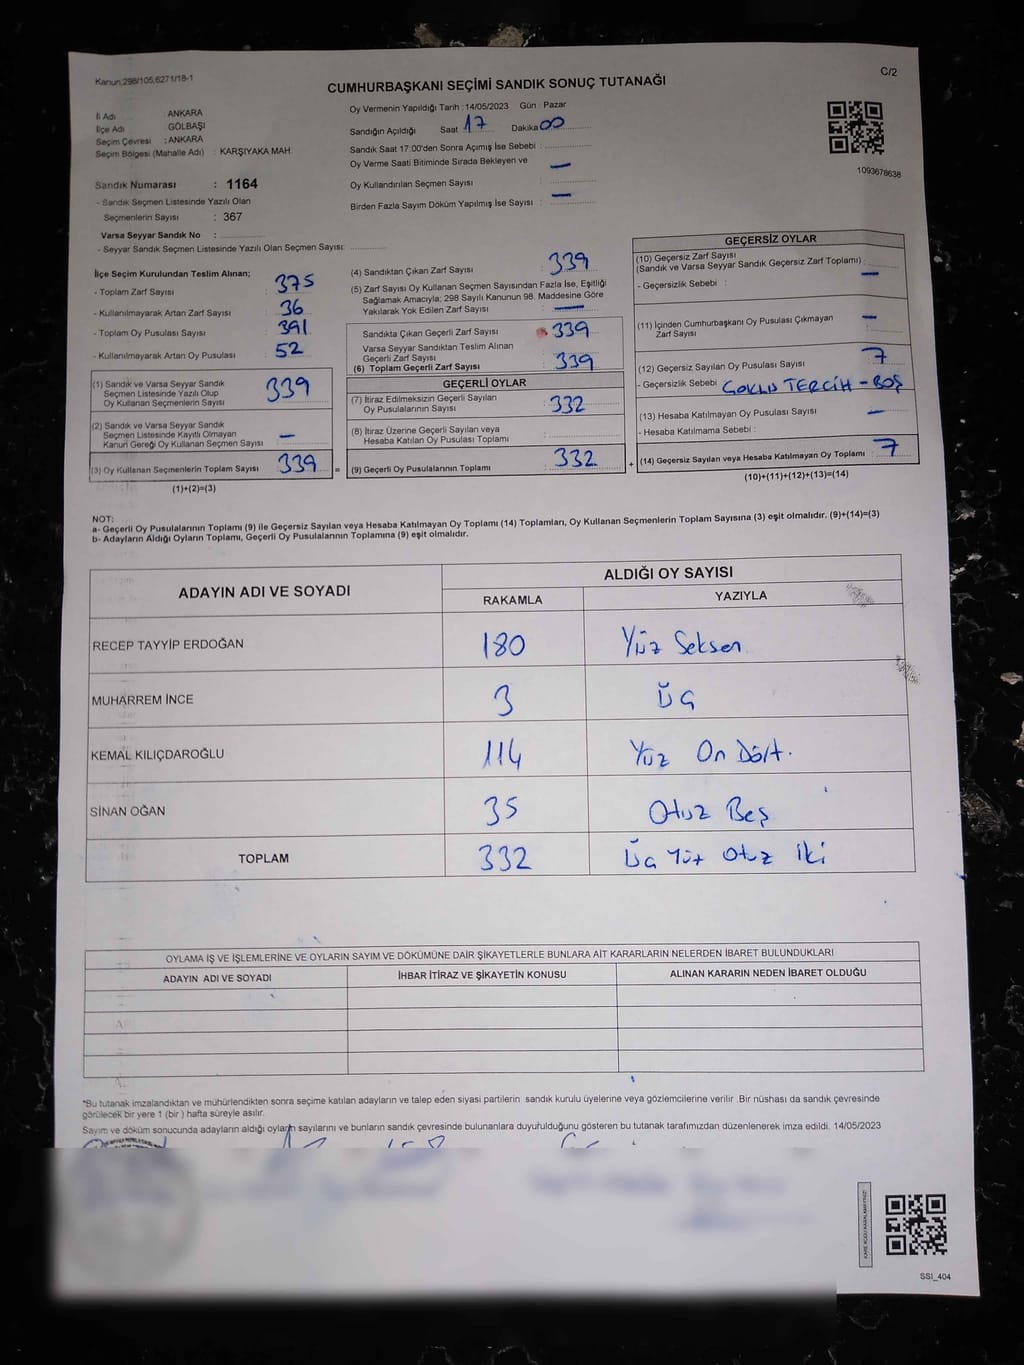 Kanun;298/105,6271/18-1
C/2
CUMHURBAŞKANI SEÇİMİ SANDIK SONUÇ TUTANAĞI
İl Adı ANKARA
İlçe Adı GÖLBAŞI
Seçim Çevresi : ANKARA
Seçim Bölgesi (Mahalle Adı) : KARŞIYAKA MAH.
Sandık Numarası : 1164
- Sandık Seçmen Listesinde Yazılı Olan
Seçmenlerin Sayısı : 367
Varsa Seyyar Sandık No :
- Seyyar Sandık Seçmen Listesinde Yazılı Olan Seçmen Sayısı:
Oy Vermenin Yapıldığı Tarih : 14/05/2023 Gün : Pazar
Sandığın Açıldığı Saat 17 Dakika 00
Sandık Saat 17:00'den Sonra Açımış İse Sebebi :
Oy Verme Saati Bitiminde Sırada Bekleyen ve
Oy Kullandırılan Seçmen Sayısı : —
Birden Fazla Sayım Döküm Yapılmış İse Sayısı : —
1093678638
İlçe Seçim Kurulundan Teslim Alınan;
- Toplam Zarf Sayısı : 375
- Kullanılmayarak Artan Zarf Sayısı : 36
- Toplam Oy Pusulası Sayısı : 391
- Kullanılmayarak Artan Oy Pusulası : 52
(1) Sandık ve Varsa Seyyar Sandık
Seçmen Listesinde Yazılı Olup
Oy Kullanan Seçmenlerin Sayısı : 339
(2) Sandık ve Varsa Seyyar Sandık
Seçmen Listesinde Kayıtlı Olmayan
Kanun Gereği Oy Kullanan Seçmen Sayısı : —
(3) Oy Kullanan Seçmenlerin Toplam Sayısı : 339 =
(1)+(2)=(3)
(4) Sandıktan Çıkan Zarf Sayısı : 339
(5) Zarf Sayısı Oy Kullanan Seçmen Sayısından Fazla İse, Eşitliği
Sağlamak Amacıyla; 298 Sayılı Kanunun 98. Maddesine Göre
Yakılarak Yok Edilen Zarf Sayısı : —
Sandıkta Çıkan Geçerli Zarf Sayısı : 339
Varsa Seyyar Sandıktan Teslim Alınan
Geçerli Zarf Sayısı :
(6) Toplam Geçerli Zarf Sayısı : 339
GEÇERLİ OYLAR
(7) İtiraz Edilmeksizin Geçerli Sayılan
Oy Pusulalarının Sayısı : 332
(8) İtiraz Üzerine Geçerli Sayılan veya
Hesaba Katılan Oy Pusulası Toplamı :
(9) Geçerli Oy Pusulalarının Toplamı : 332 +
GEÇERSİZ OYLAR
(10) Geçersiz Zarf Sayısı
(Sandık ve Varsa Seyyar Sandık Geçersiz Zarf Toplamı) : —
- Geçersizlik Sebebi :
(11) İçinden Cumhurbaşkanı Oy Pusulası Çıkmayan
Zarf Sayısı : —
(12) Geçersiz Sayılan Oy Pusulası Sayısı : 7
- Geçersizlik Sebebi : ÇOKLU TERCİH - BOŞ
(13) Hesaba Katılmayan Oy Pusulası Sayısı : —
- Hesaba Katılmama Sebebi :
(14) Geçersiz Sayılan veya Hesaba Katılmayan Oy Toplamı : 7
(10)+(11)+(12)+(13)=(14)
NOT:
a- Geçerli Oy Pusulalarının Toplamı (9) ile Geçersiz Sayılan veya Hesaba Katılmayan Oy Toplamı (14) Toplamları, Oy Kullanan Seçmenlerin Toplam Sayısına (3) eşit olmalıdır. (9)+(14)=(3)
b- Adayların Aldığı Oyların Toplamı, Geçerli Oy Pusulalarının Toplamına (9) eşit olmalıdır.
ADAYIN ADI VE SOYADI ALDIĞI OY SAYISI
RAKAMLA YAZIYLA
RECEP TAYYİP ERDOĞAN 180 Yüz Seksen
MUHARREM İNCE 3 Üç
KEMAL KILIÇDAROĞLU 114 Yüz On Dört.
SİNAN OĞAN 35 Otuz Beş
TOPLAM 332 Üç Yüz Otuz İki
OYLAMA İŞ VE İŞLEMLERİNE VE OYLARIN SAYIM VE DÖKÜMÜNE DAİR ŞİKAYETLERLE BUNLARA AİT KARARLARIN NELERDEN İBARET BULUNDUKLARI
ADAYIN ADI VE SOYADI İHBAR İTİRAZ VE ŞİKAYETİN KONUSU ALINAN KARARIN NEDEN İBARET OLDUĞU
*Bu tutanak imzalandıktan ve mühürlendikten sonra seçime katılan adayların ve talep eden siyasi partilerin sandık kurulu üyelerine veya gözlemcilerine verilir .Bir nüshası da sandık çevresinde
görülecek bir yere 1 (bir ) hafta süreyle asılır.
Sayım ve döküm sonucunda adayların aldığı oyların sayılarını ve bunların sandık çevresinde bulunanlara duyurulduğunu gösteren bu tutanak tarafımızdan düzenlenerek imza edildi. 14/05/2023
SSI_404